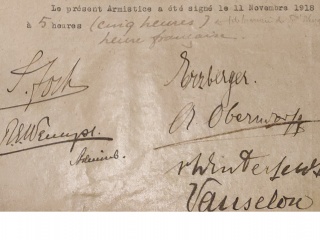 Le présent Armistice a été signé le 11 Novembre 1918
à 5 heures (cinq heures)
heure française.
F. Foch
R.E. Wemyss
Admiral.
Erzberger.
A Oberndorff
v Winterfeldt
Vanselow